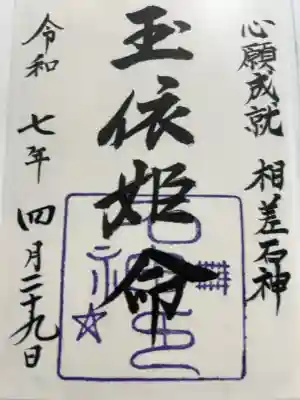 心願成就 相差石神
玉依姫命
令和 七年 四月二十九日